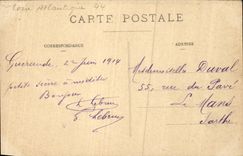 Loire Atlantique 44
CARTE POSTALE
CORRESPONDANCE
ADRESSE
Guérande, 2 Juin 1914
petite scène à méditer
Bonjour
Lebrun
E. Lebrun
Mesdemoiselles Duval
55, rue du Pavé
Le Mans
Sarthe